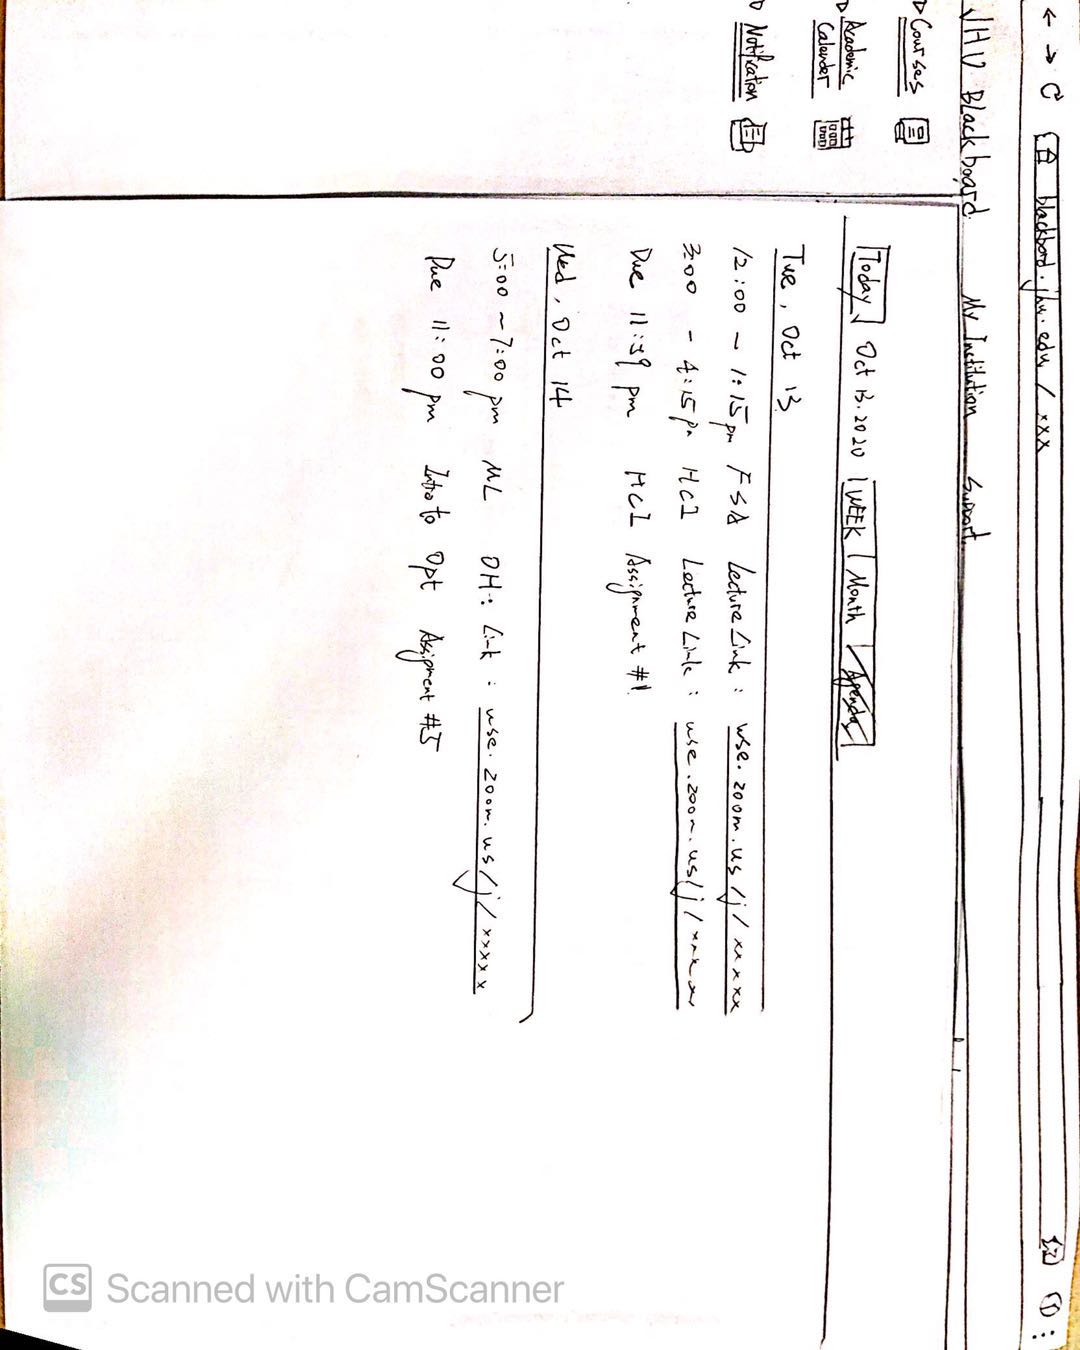 blackbord.jhu.edu / xxx
JHU Blackboard My Institution Support
Courses
Academic
Calender
Notification
Today Oct 13.2020 WEEK Month Agenda
Tue, Oct 13
12:00 ~ 1:15 pm FSA Lecture Link: wse.zoom.us/j/xxxxx
3:00 - 4:15 pm HCI Lecture Link: wse.zoom.us/j/xxxxx
Due 11:59 pm HCI Assignment #1
Wed, Oct 14
5:00 ~ 7:00 pm ML OH: Link: wse.zoom.us/j/xxxxx
Due 11:00 pm Intro to Opt Assigment #5
CS Scanned with CamScanner